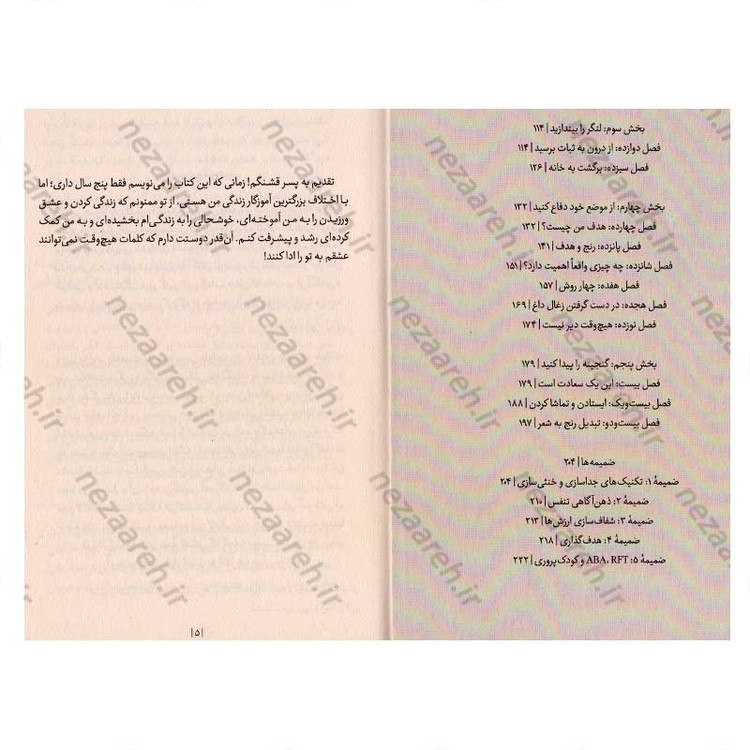 بخش سوم: لنگر را بیندازید | ۱۱۴
فصل دوازده: از درون به ثبات برسید | ۱۱۴
فصل سیزده: برگشت به خانه | ۱۲۶
بخش چهارم: از موضع خود دفاع کنید | ۱۳۲
فصل چهارده: هدف من چیست؟ | ۱۳۲
فصل پانزده: رنج و هدف | ۱۴۱
فصل شانزده: چه چیزی واقعاً اهمیت دارد؟ | ۱۵۱
فصل هفده: چهار روش | ۱۵۷
فصل هجده: در دست گرفتن زغال داغ | ۱۶۹
فصل نوزده: هیچ‌وقت دیر نیست | ۱۷۴
بخش پنجم: گنجینه را پیدا کنید | ۱۷۹
فصل بیست: این یک سعادت است | ۱۷۹
فصل بیست‌ویک: ایستادن و تماشا کردن | ۱۸۸
فصل بیست‌ودو: تبدیل رنج به شعر | ۱۹۷
ضمیمه‌ها | ۲۰۴
ضمیمهٔ ۱: تکنیک‌های جداسازی و خنثی‌سازی | ۲۰۴
ضمیمهٔ ۲: ذهن‌آگاهی تنفس | ۲۱۰
ضمیمهٔ ۳: شفاف‌سازی ارزش‌ها | ۲۱۳
ضمیمهٔ ۴: هدف‌گذاری | ۲۱۸
ضمیمهٔ ۵: ABA، RFT و کودک‌پروری | ۲۲۲
تقدیم به پسر قشنگم! زمانی که این کتاب را می‌نویسم فقط پنج سال داری؛ اما
با اختلاف بزرگترین آموزگار زندگی من هستی. از تو ممنونم که زندگی کردن و عشق
ورزیدن را به من آموخته‌ای، خوشحالی را به زندگی‌ام بخشیده‌ای و به من کمک
کرده‌ای رشد و پیشرفت کنم. آن‌قدر دوستت دارم که کلمات هیچ‌وقت نمی‌توانند
عشقم به تو را ادا کنند!
|۵|
nezaareh.ir